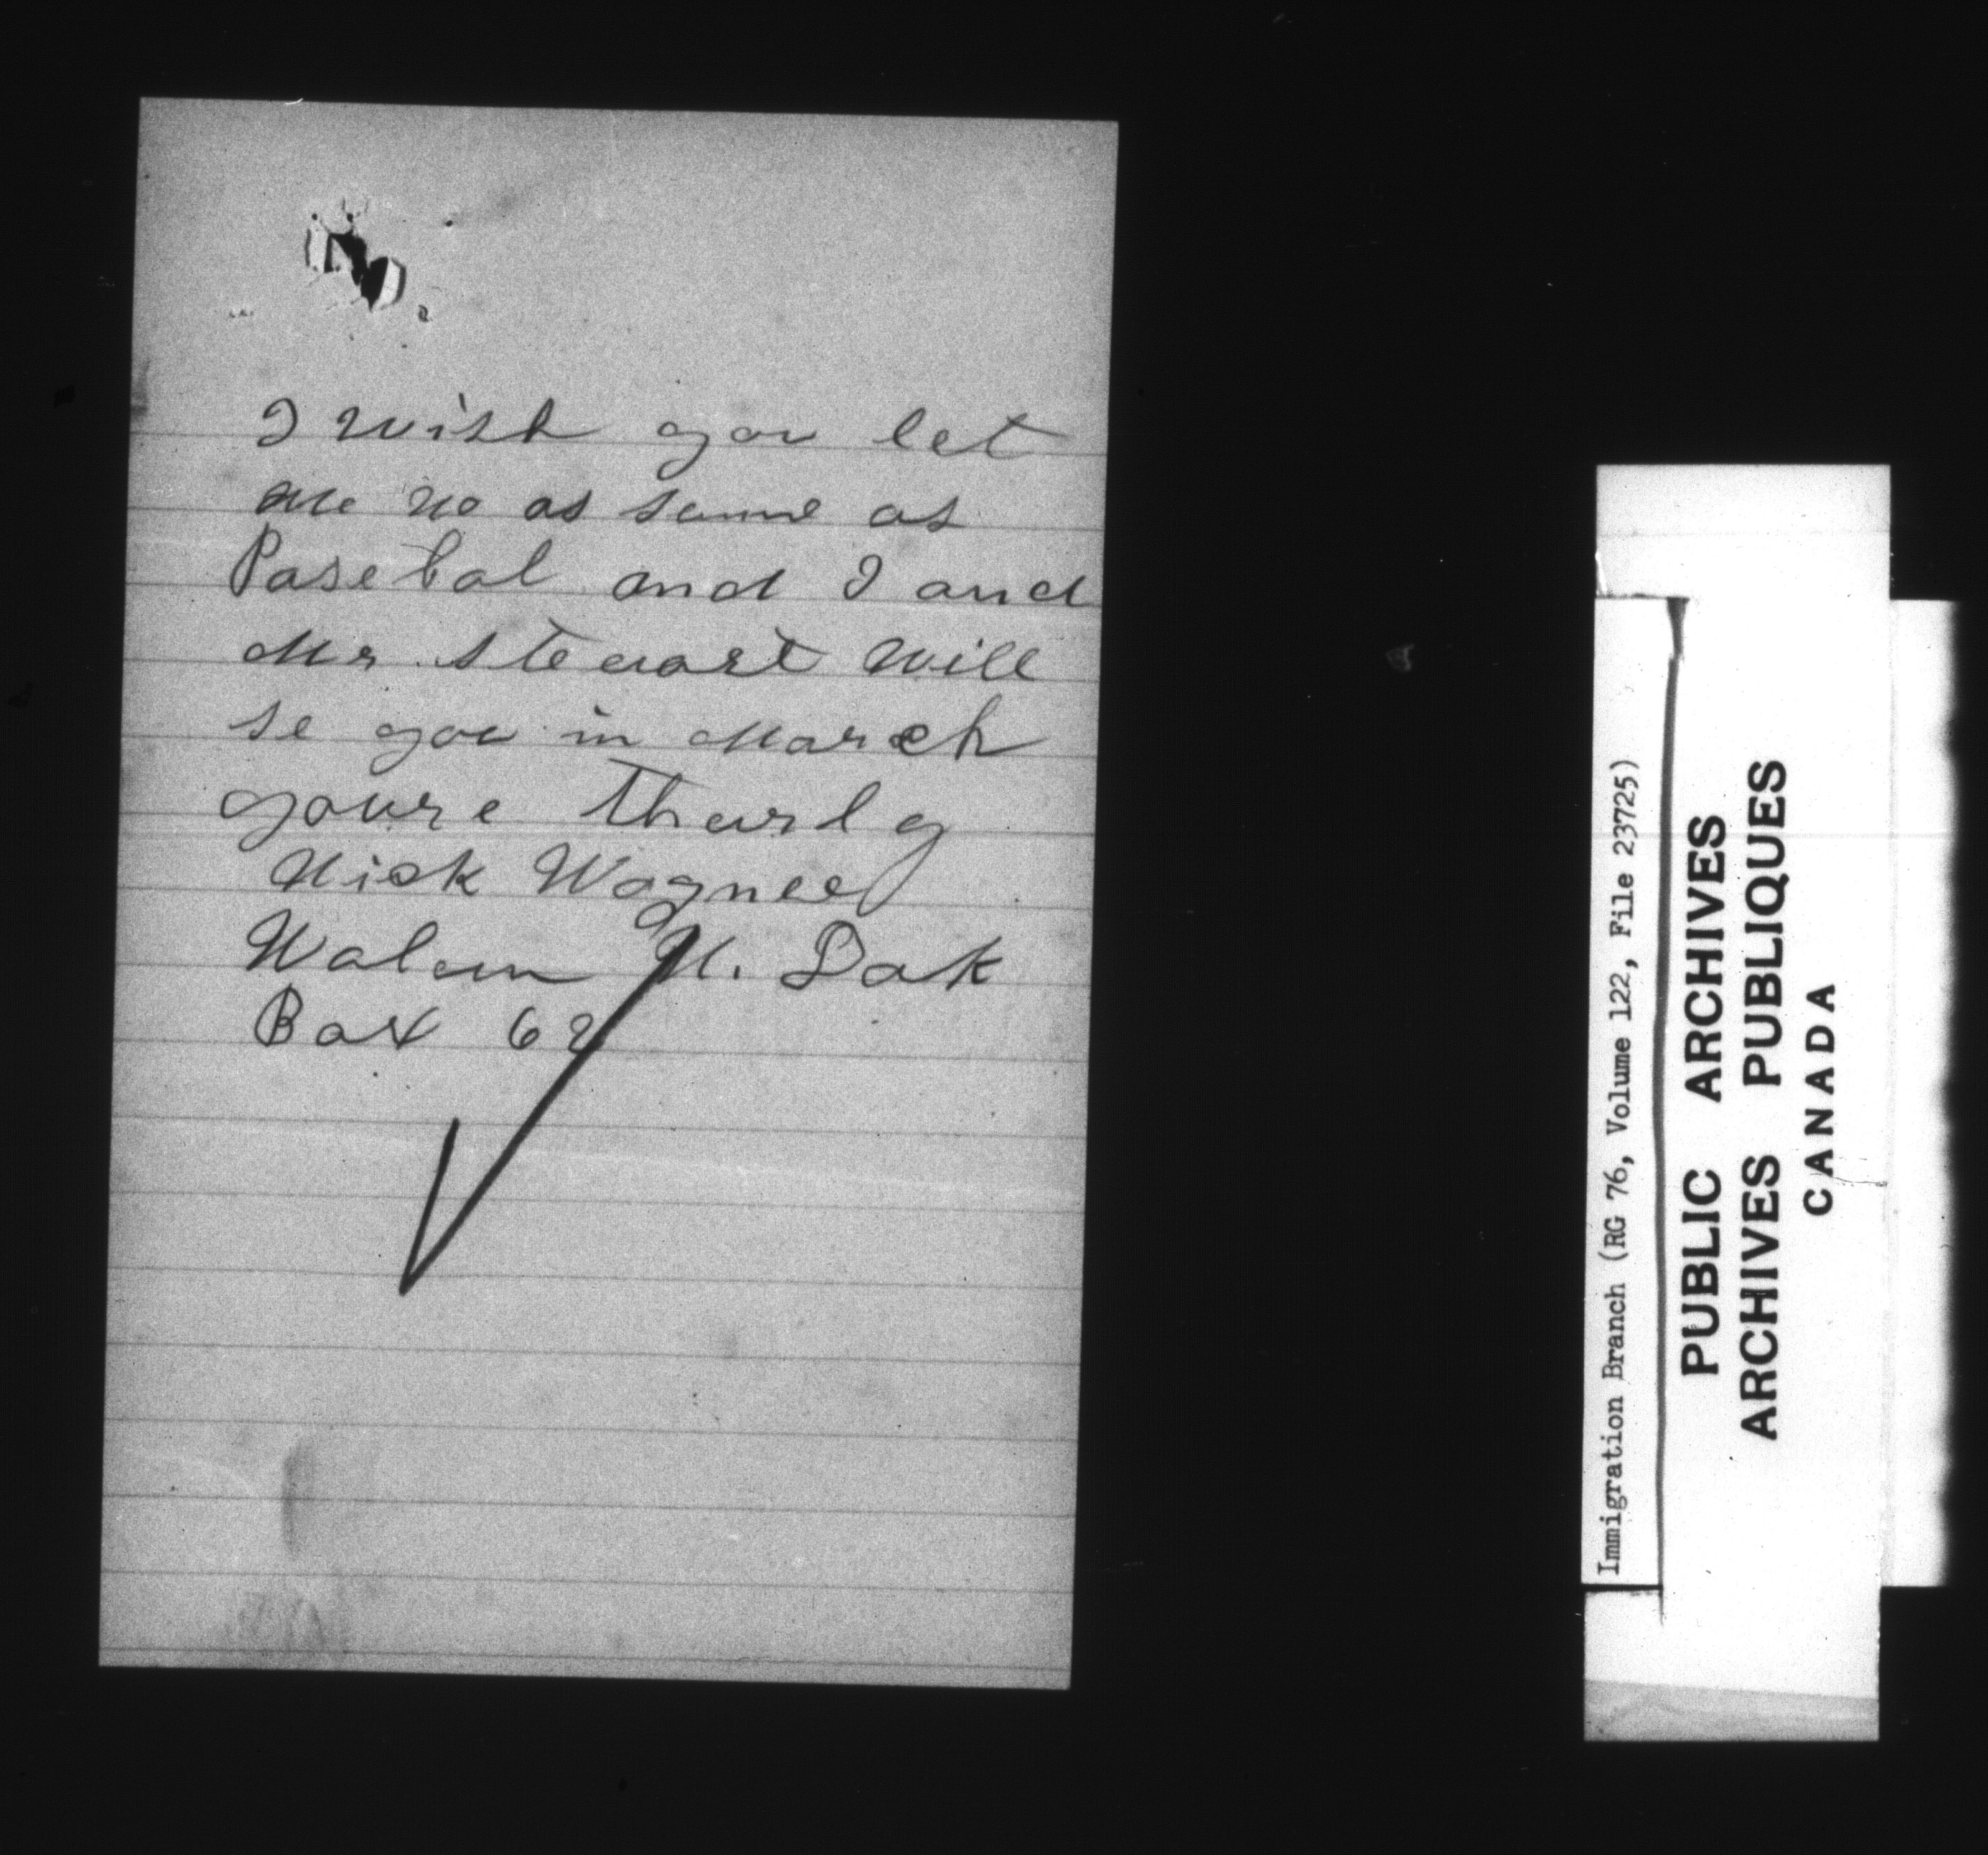 I wish you let
me no as sune as
Posebal and I and
Mr. Stewart will
se you in March
youre thurly
Nick Wagner
Walum N. Dak
Box 62
Immigration Branch (RG 76, Volume 122, File 23725)
PUBLIC ARCHIVES
ARCHIVES PUBLIQUES
CANADA